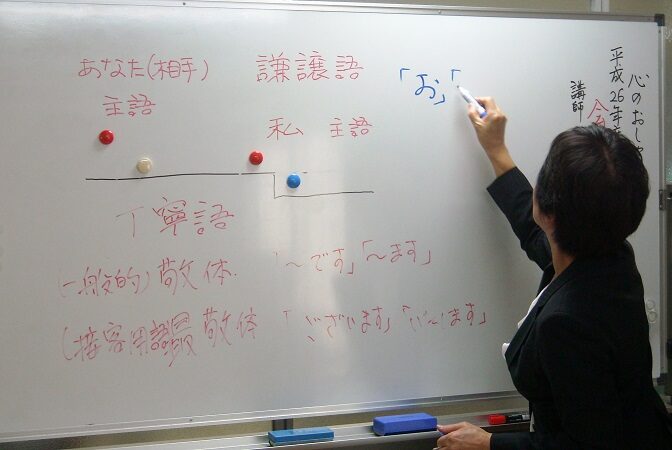 あなた(相手)
主語
謙譲語
私 主語
「お」「
丁寧語
(一般的)敬体 「〜です」「〜ます」
(接客用語 敬体 「ございます」
心のお
平成26年
講師